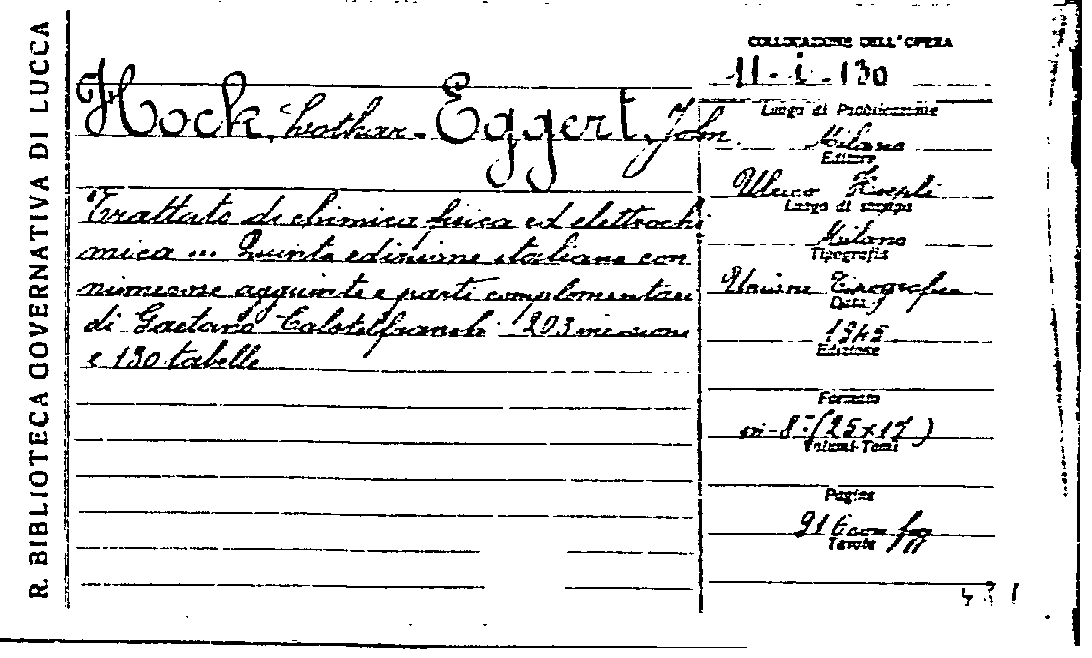 R. BIBLIOTECA GOVERNATIVA DI LUCCA
Hock, Lothar - Eggert, John.
Trattato di chimica fisica ed elettrochi
mica ... Quinta edizione italiana con
numerose aggiunte e parti complementari
di Gaetano 203
e 130 tabelle
COLLOCAZIONE DELL'OPERA
11 - i - 130
Luogo di Pubblicazione
Milano
Editore
Ulrico Hoepli
Luogo di stampa
Milano
Tipografia
Unione Tipografica
Data
1945
Edizione
Formato
in-8° (25x17)
Volumi-Tomi
Pagine
916 con fig
Tavole
431